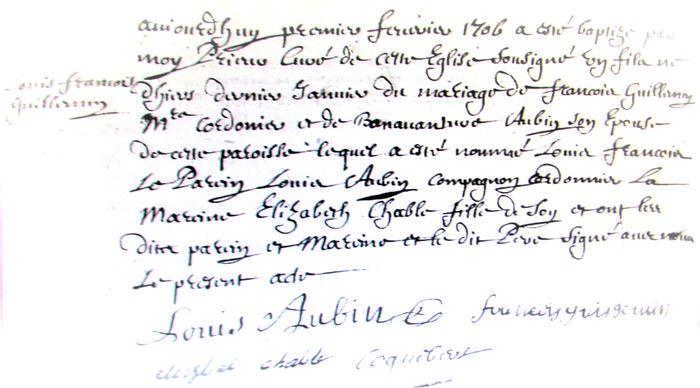 aujourdhuy premier fevrier 1706 a esté baptizé par
moy Prieur Curé de cette Eglise sousigné un fils né
Louis francois
Guillermin
d'hiers dernier Janvier du mariage de francois Guillermin
Mtre Cordonier et de Bonavanture Aubin son Epouse
de cette paroisse lequel a esté nommé Louis francois
Le Parein Louis Aubin compagnon cordonnier La
Mareine Elizabeth Chable fille de Soy et ont les
dits parein et Mareine et le dit Pere signé avec nous
Le present acte
Louis Aubin
Elizabet chable Coquebert